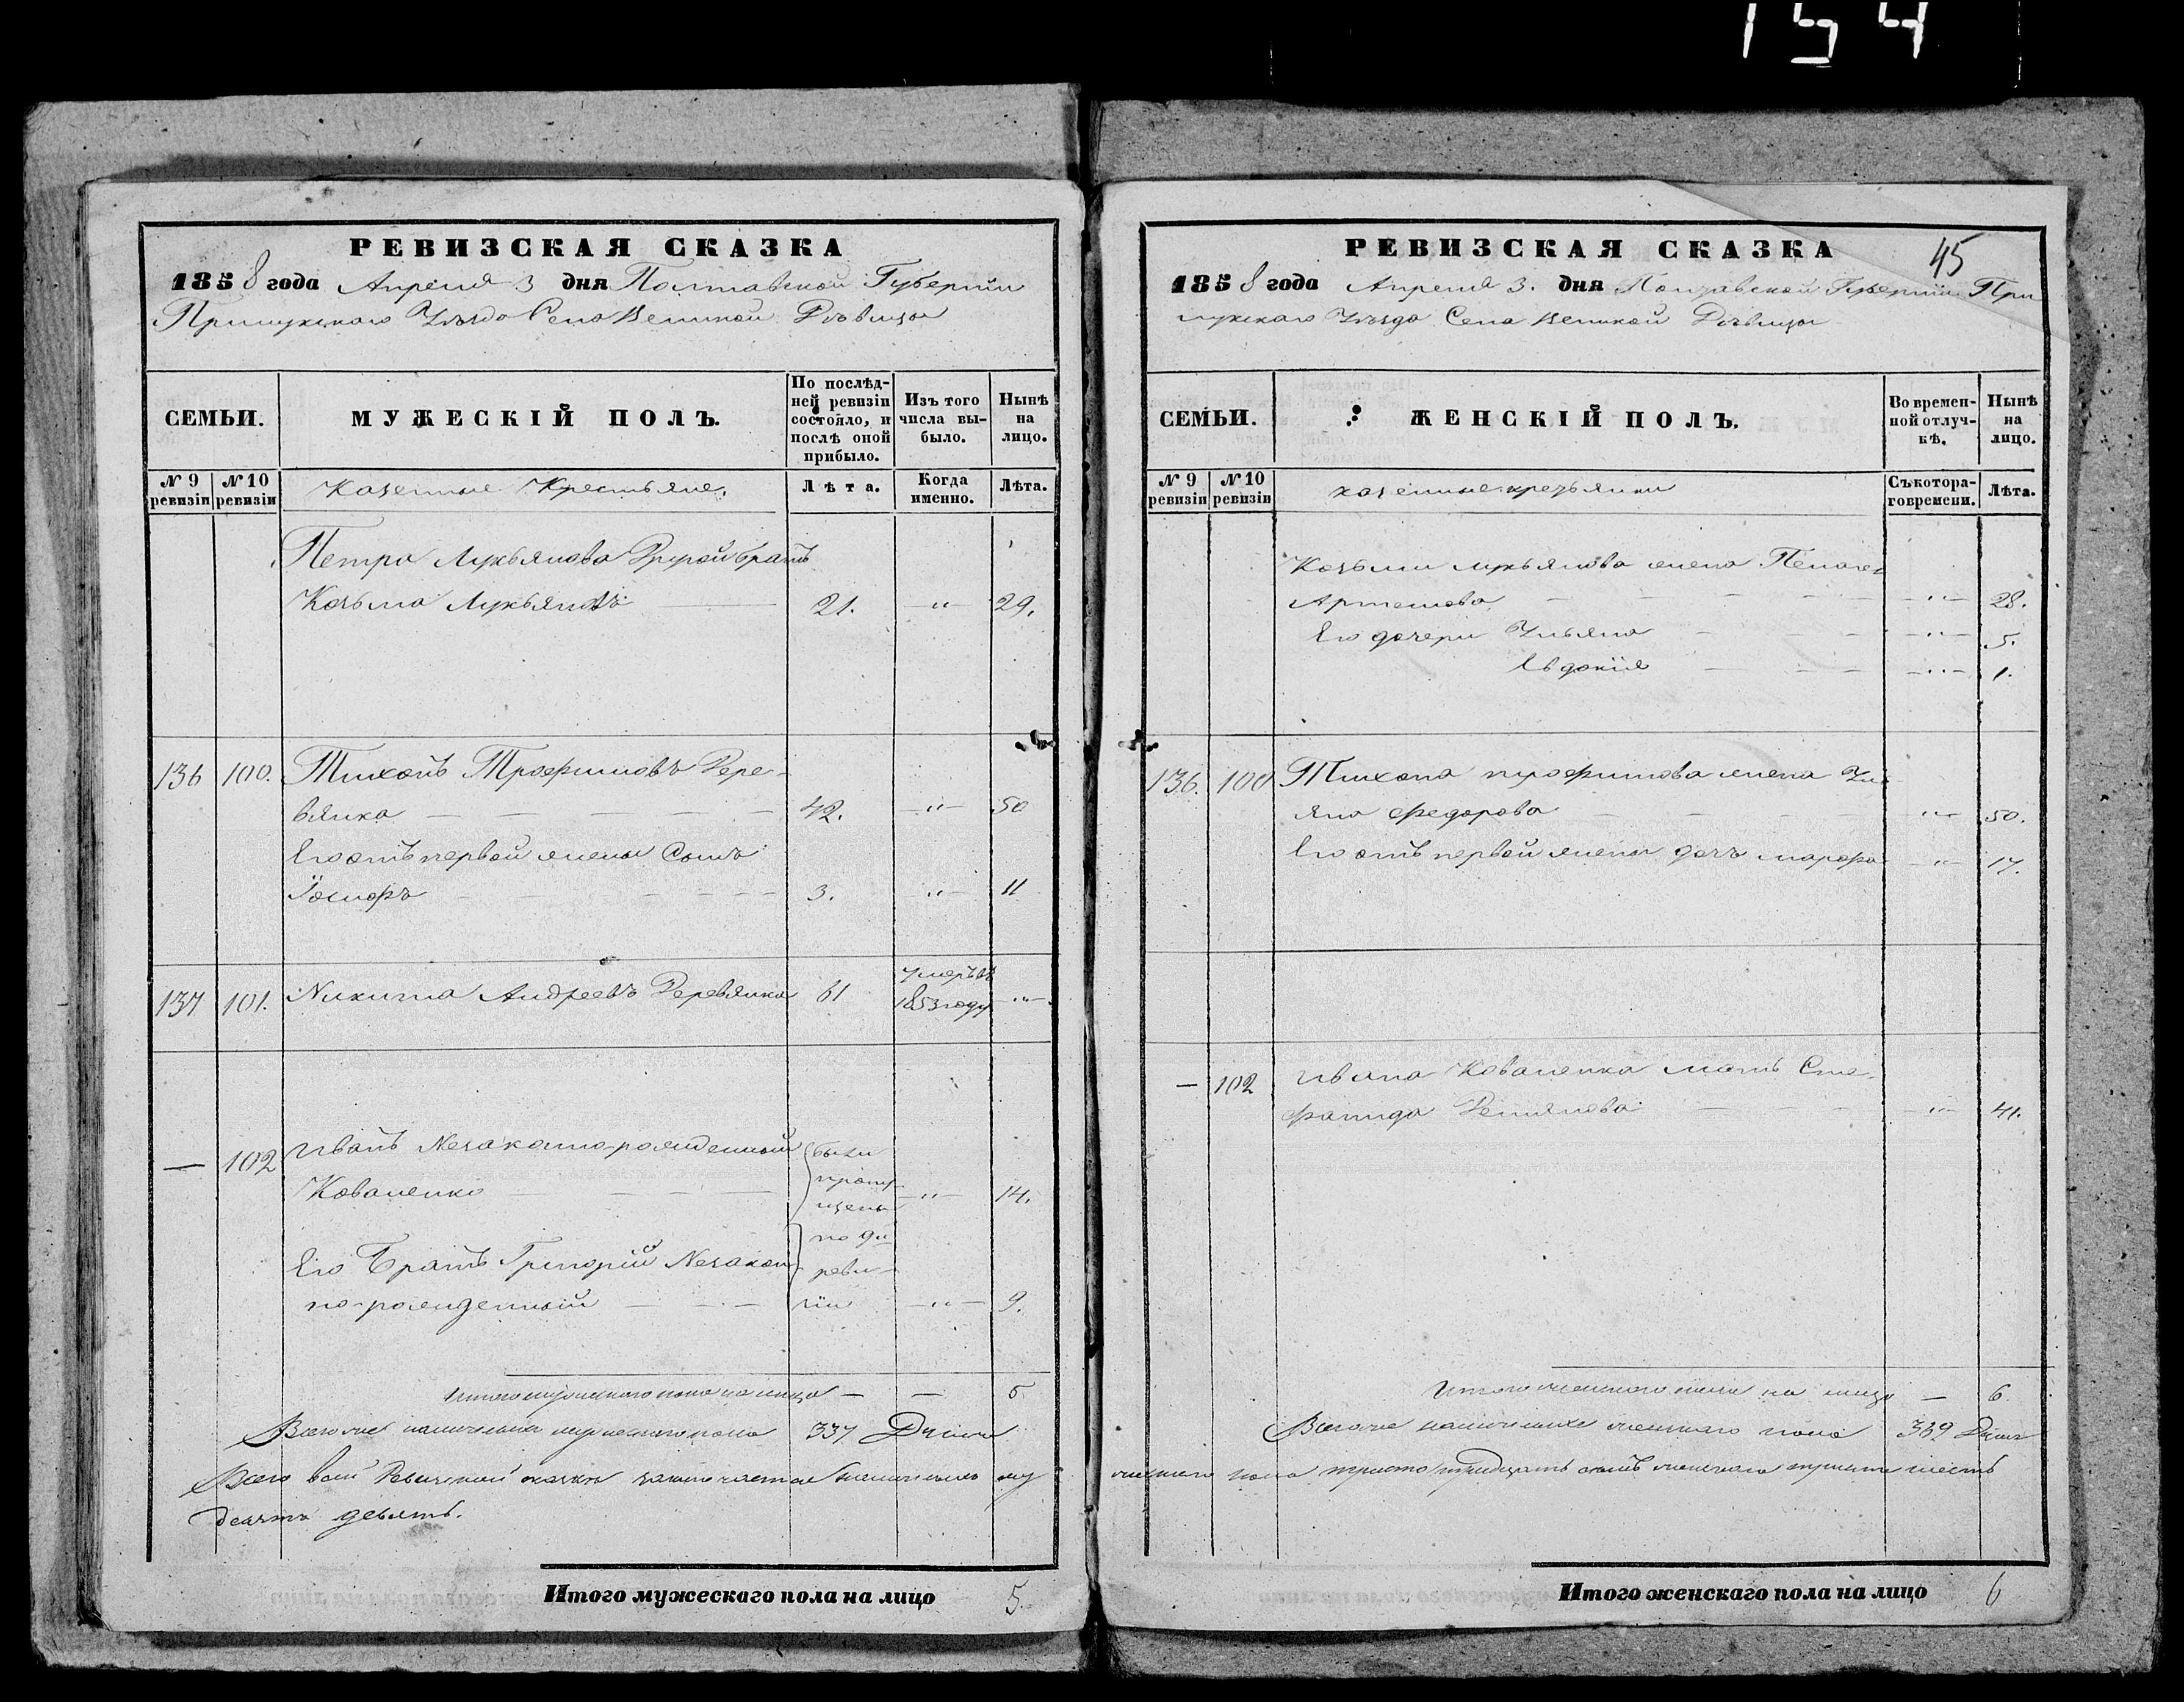 154
РЕВИЗСКАЯ СКАЗКА
1858 года Апреля 3 дня Полтавской Губерніи
Прилукскаго Уѣзда Села Великой Дѣвицы
СЕМЬИ.
МУЖЕСКІЙ ПОЛЪ.
По послѣд-
ней ревизіи
состояло, и
послѣ оной
прибыло.
Изъ того
числа вы-
было.
Нынѣ
на
лицо.
№ 9
ревизіи
№ 10
ревизіи
Казенные Крестьяне.
Лѣта.
Когда
именно.
Лѣта.
Петра Лукьянова Другой братъ
Козьма Лукьяновъ 21. — " — 29.
136 100. Тихонъ Трофимовъ Дере-
вянка 42. — " — 50
Его отъ первой жены Сынъ
Іосифъ 3. — " — 11
137 101. Никита Андреевъ Деревянка 61 умеръ въ
1853 году — " —
— 102 Иванъ Незаконно-рожденный
Коваленко — " — 14.
были
пропу-
щены
по 9й
реви-
зіи
Его Братъ Григорій Незакон-
но-рожденный — " — 9.
Итого мужескаго пола на лицо — — 5
Всего же наличныхъ мужескаго пола 337 Душъ
Всего въ сей Ревизской сказкѣ заключается наличныхъ му
десятъ девять.
Итого мужескаго пола на лицо 5.
45
РЕВИЗСКАЯ СКАЗКА
1858 года Апреля 3. дня Полтавской Губерніи При
лукскаго Уѣзда Села Великой Дѣвицы
СЕМЬИ.
ЖЕНСКІЙ ПОЛЪ.
Во времен-
ной отлуч-
кѣ.
Нынѣ
на
лицо.
№ 9
ревизіи
№ 10
ревизіи
казенные крестьянки
Съ котора-
го времени.
Лѣта.
Козьми Лукьянова жена Пелагея
Артемова — " — 28.
Его дочери Ульяна — " — 5.
Евдокія — " — 1.
136. 100 Тихона Трофимова жена Уль
яна Федорова " — 50.
Его отъ первой жены дочь Марфа — " — 17.
— 102 Ивана Коваленка мать Сте-
фанида Демянова " — 41.
Итого женскаго пола на лицо — 6.
Всего же наличныхъ женскаго пола 369 Душъ
жескаго пола триста тридцать семь женскаго триста шесть
Итого женскаго пола на лицо 6